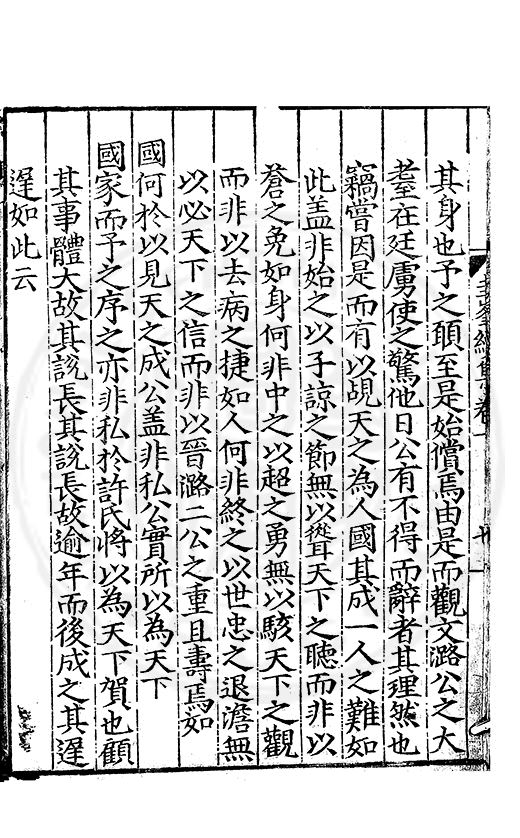 其身也予之頭至是始償焉由是而觀文潞公之大
耋在廷虜使之驚他日公有不得而辭者其理然也
竊嘗因是而有以覘天之為人國其成一人之難如
此盖非始之以子諒之節無以聳天下之聽而非以
蒼之免如身何非中之以超之勇無以駭天下之觀
而非以去病之捷如人何非終之以世忠之退澹無
以必天下之信而非以晉潞二公之重且壽焉如
國何於以見天之成公盖非私公實所以為天下
國家而予之序之亦非私於許氏將以為天下賀也顧
其事體大故其說長其說長故逾年而後成之其遲
遲如此云